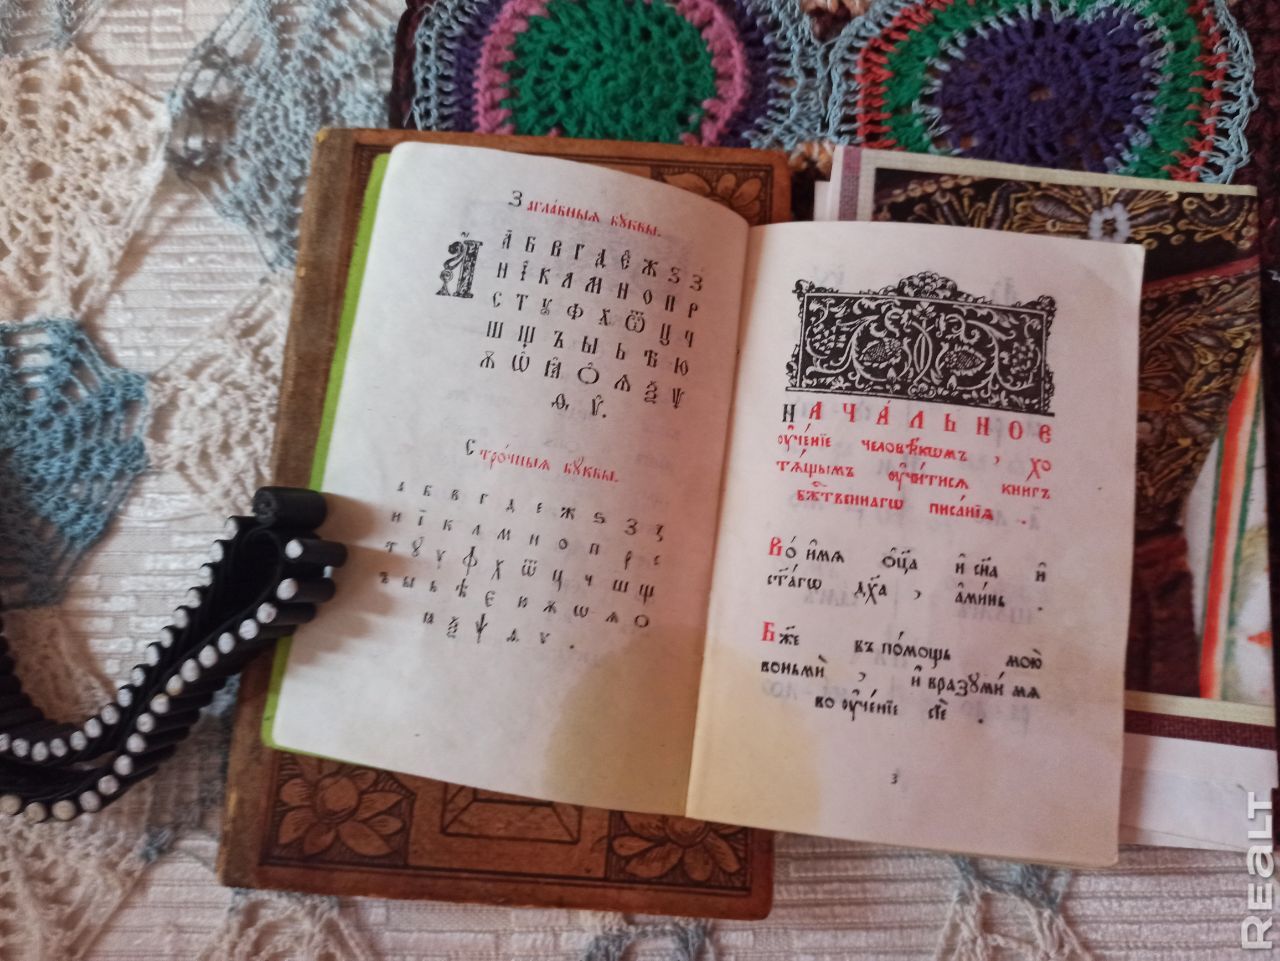 Загла́вныѧ бꙋквы.
А҆ А҆ Б В Г Д Є҆ Ж Ѕ З
И І҆ К Л М Н О П Р
С Т Ꙋ Ф Х Ѿ Ц Ч
Ш Щ Ъ Ы Ь Ѣ Ю
Ѫ Ѽ Ꙗ҆ Ѻ҆ Ѧ Ѯ Ѱ
Ѳ Ѵ҆.
Стро́чныѧ бꙋквы.
а б в г д е ж ѕ з ꙁ
и ї к л м н о п р с
т ꙋ у ф х ѿ ц ч ш щ
ъ ы ь ѣ є ю ѫ ѡ ѧ ѻ
ꙗ ѯ ѱ ѳ ѵ .
НАЧА́ЛЬНОЕ
оу҆че́нїе человѣ́кѡмъ , хо
тѧ́щымъ оу҆чи́тисѧ книгъ
бж҃е́ственнагѡ писа́нїѧ .
Во и҆́мѧ ѻ҆ц҃а̀ и҆ сн҃а и҆
ст҃а́гѡ дх҃а , а҆ми́нь .
Бж҃е въ по́мощь мою̀
вонмѝ , и҆ вразꙋми́ мѧ
во оу҆че́нїе сїѐ .
3
Realt